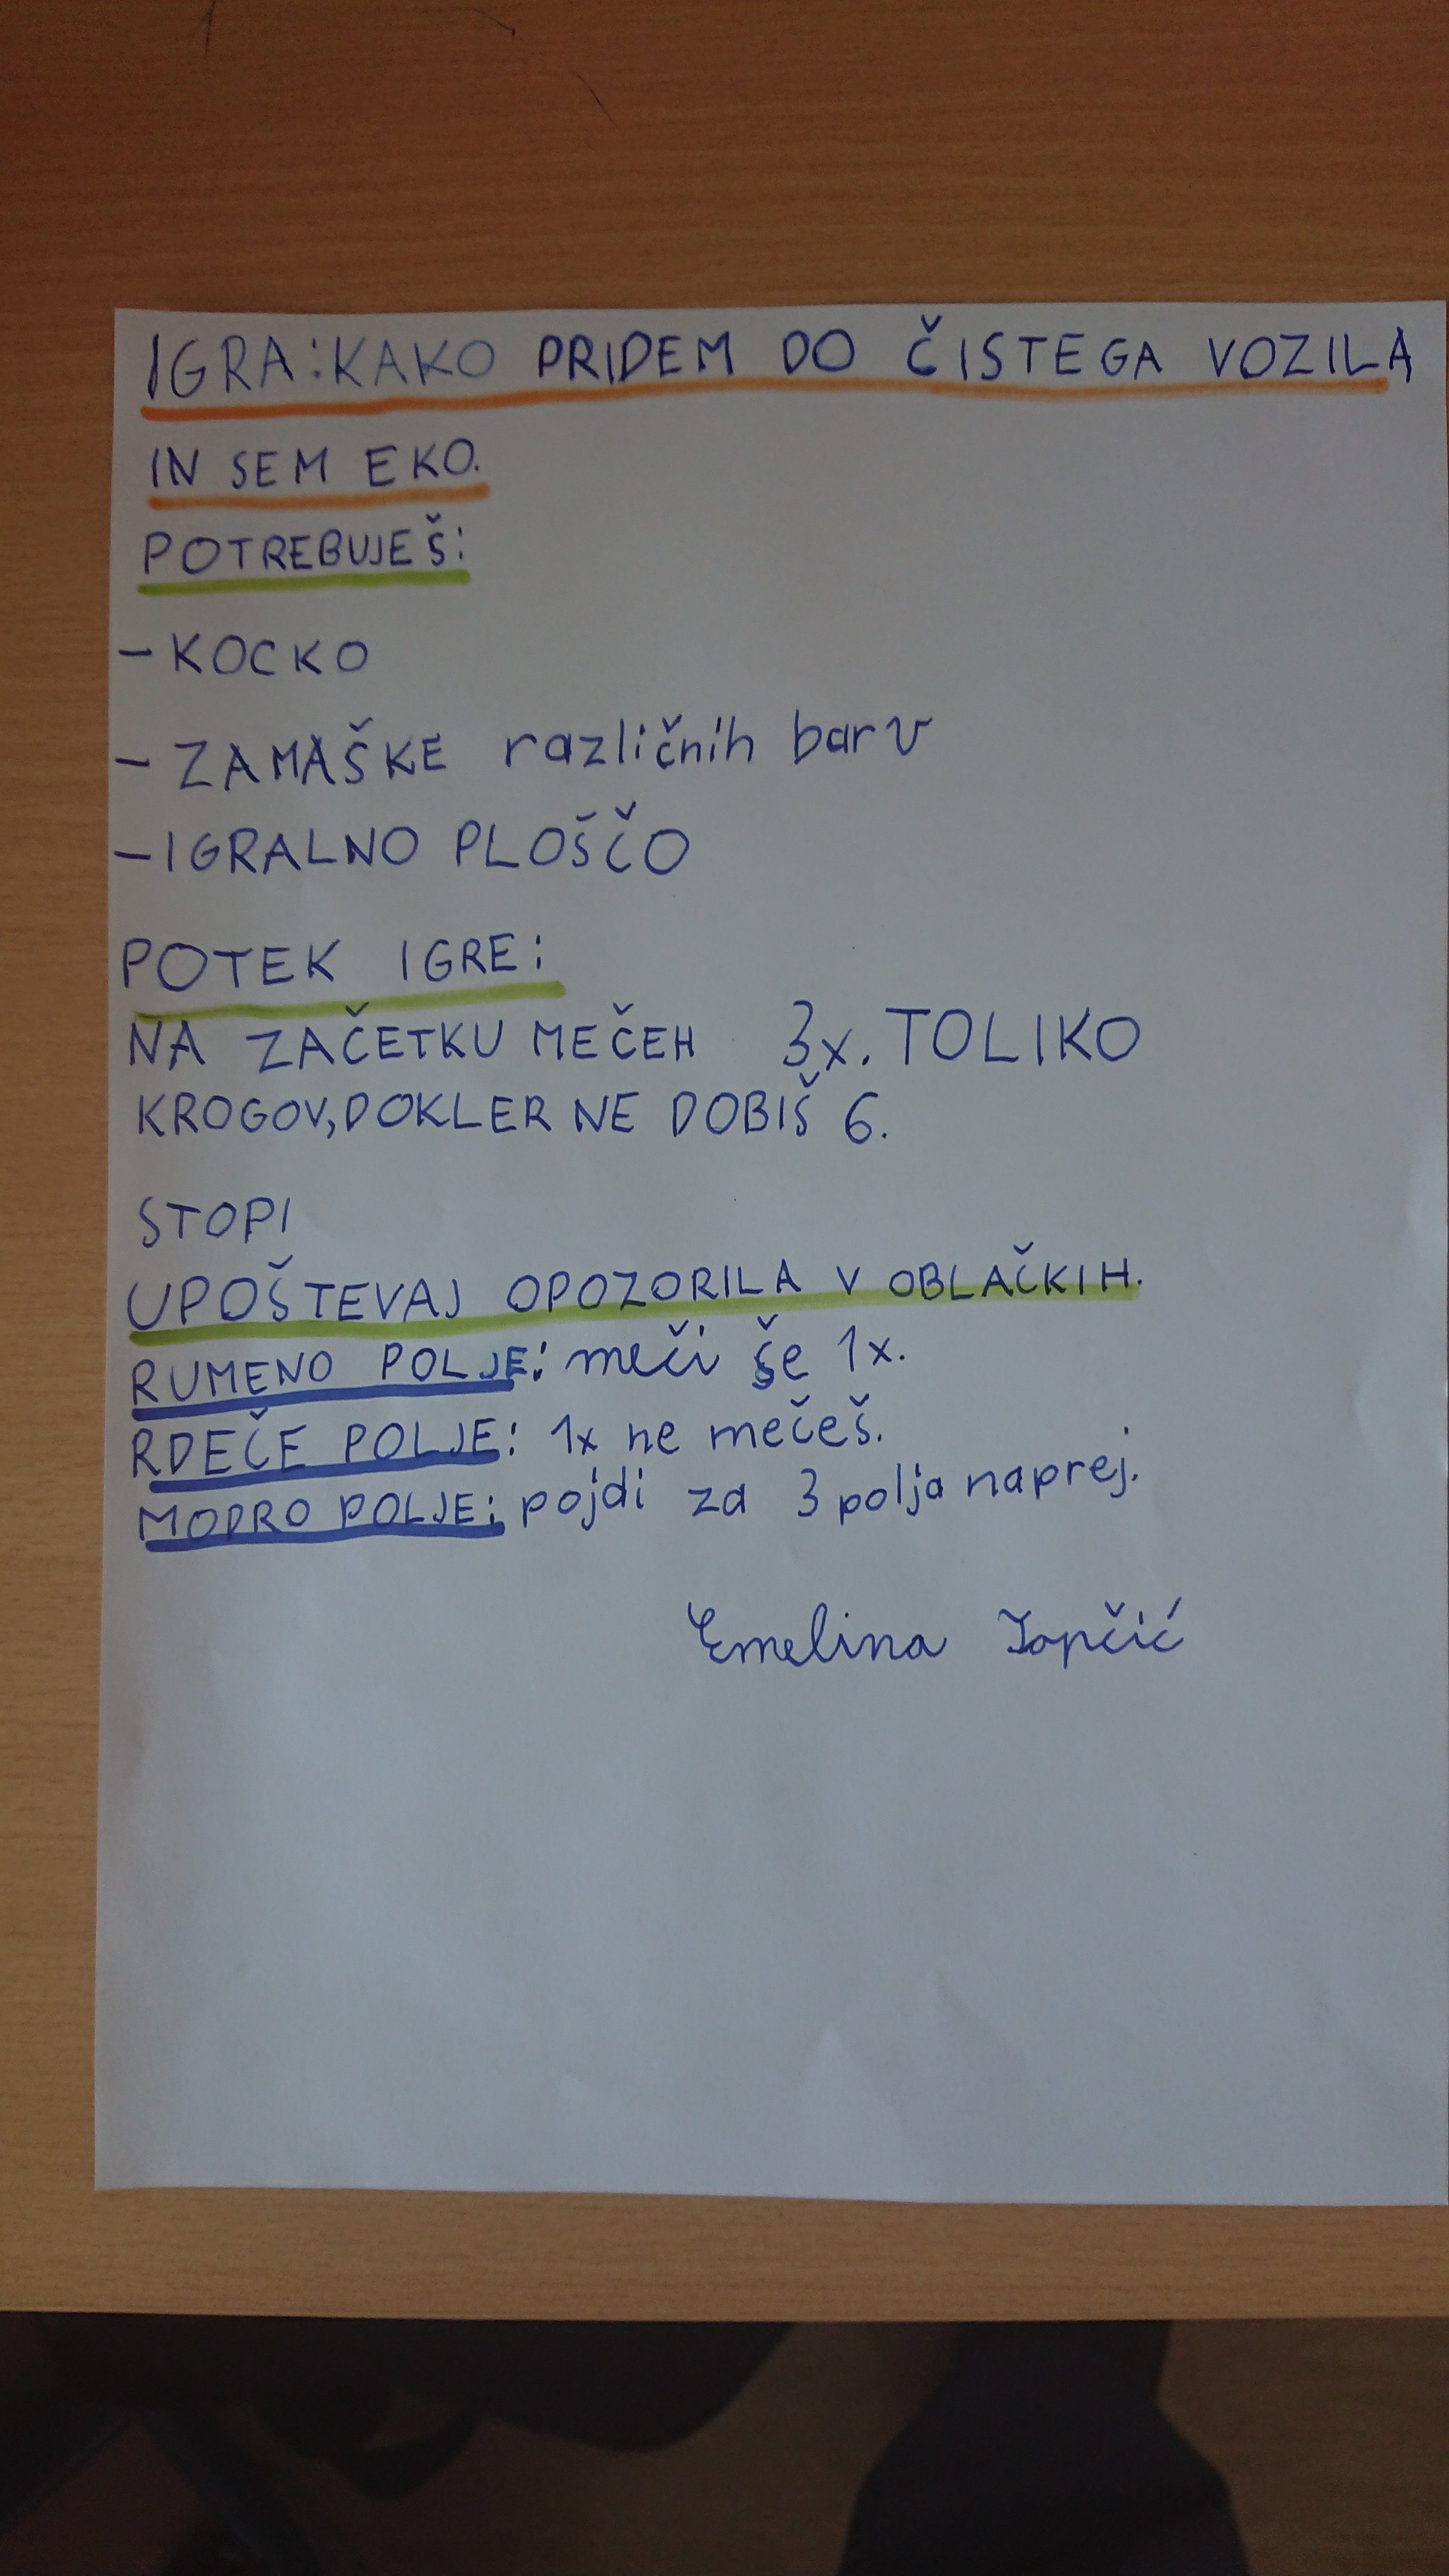 IGRA: KAKO PRIDEM DO ČISTEGA VOZILA
IN SEM EKO.
POTREBUJEŠ:
- KOCKO
- ZAMAŠKE različnih barv
- IGRALNO PLOŠČO
POTEK IGRE:
NA ZAČETKU MEČEH 3x. TOLIKO
KROGOV, DOKLER NE DOBIŠ 6.
STOPI
UPOŠTEVAJ OPOZORILA V OBLAČKIH.
RUMENO POLJE: meči še 1x.
RDEČE POLJE: 1x ne mečeš.
MODRO POLJE: pojdi za 3 polja naprej.
Emelina